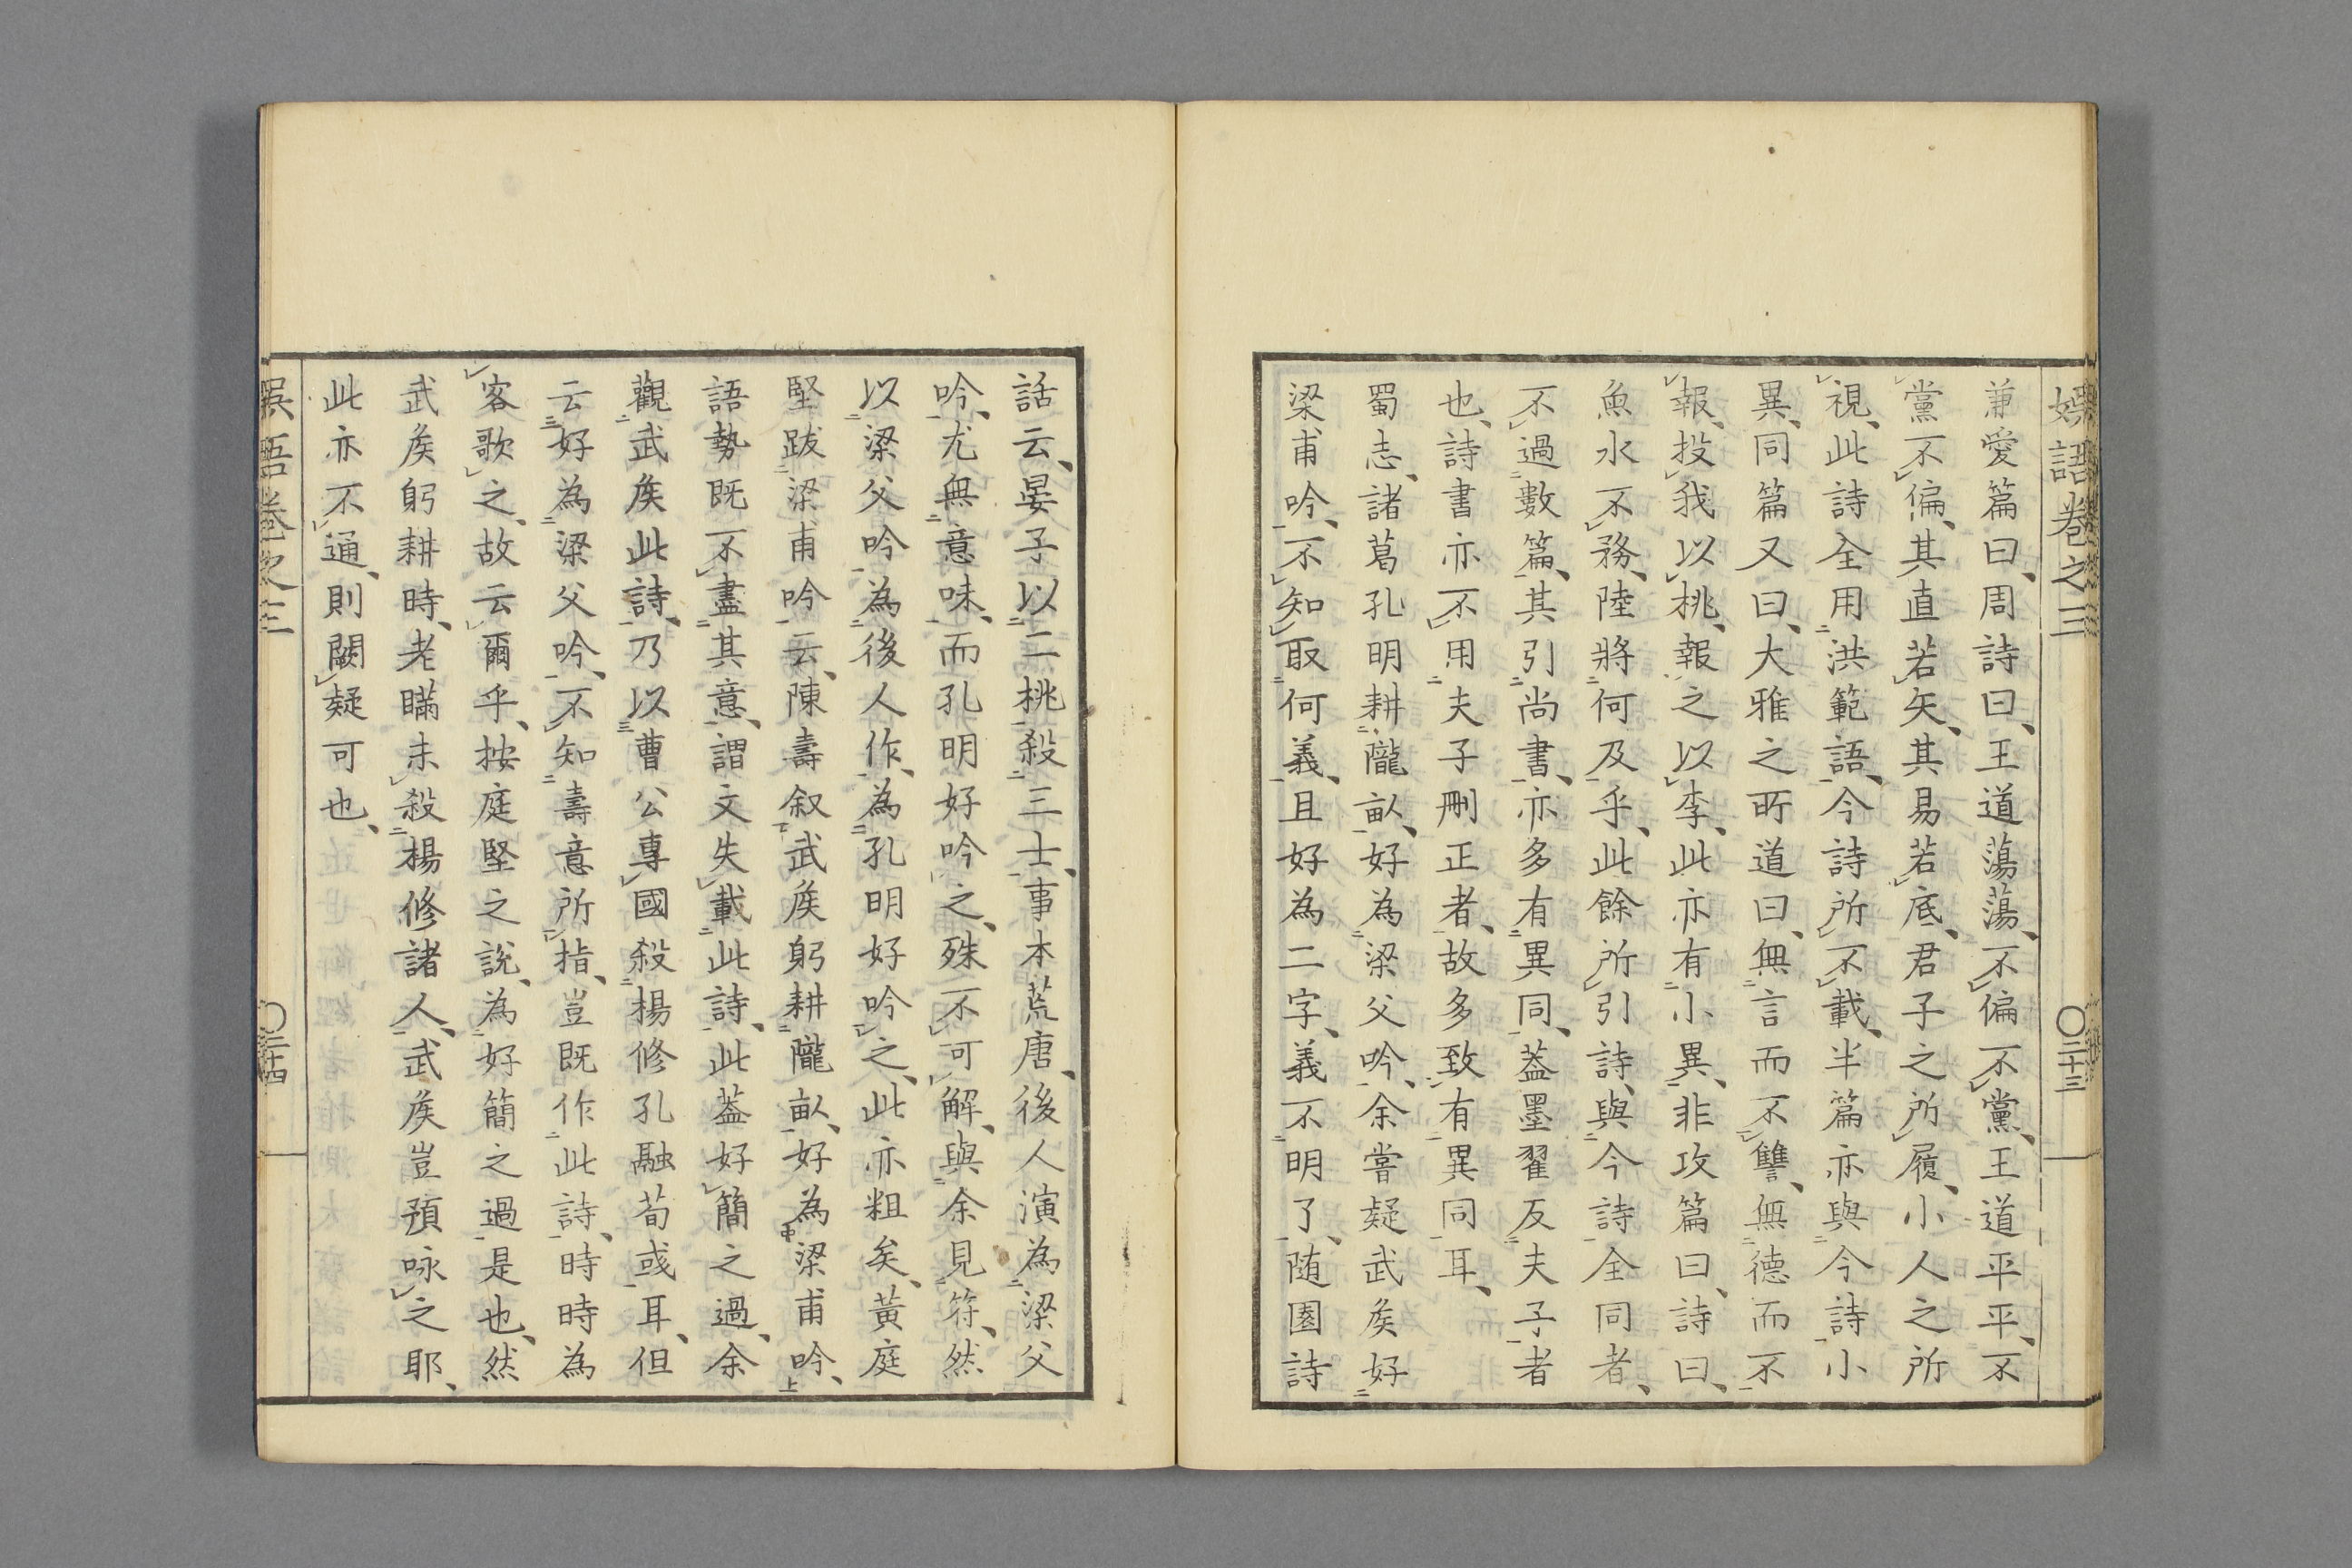 娯語卷之三 〇二十三
兼愛篇曰、周詩曰、王道蕩蕩、不偏不黨、王道平平、不
黨不偏、其直若矢、其易若底、君子之所履、小人之所
視、此詩全用洪範語、今詩所不載、半篇亦與今詩小
異、同篇又曰、大雅之所道曰、無言而不讐、無德而不
報、投我以桃、報之以李、此亦有小異、非攻篇曰、詩曰、
魚水不務、陸將何及乎、此餘所引詩、與今詩全同者、
不過數篇、其引尚書、亦多有異同、蓋墨翟反夫子者
也、詩書亦不用夫子刪正者、故多致有異同耳、
蜀志、諸葛孔明耕隴畝、好為梁父吟、余嘗疑武矦好
梁甫吟、不知取何義、且好為二字、義不明了、随園詩
話云、晏子以二桃殺三士、事本荒唐、後人演為梁父
吟、尤無意味、而孔明好吟之、殊不可解、與余見符、然
以梁父吟為後人作、為孔明好吟之、此亦粗矣、黃庭
堅跋梁甫吟云、陳壽叙武矦躬耕隴畝、好為梁甫吟、
語勢既不盡其意、謂文失載此詩、此蓋好簡之過、余
觀武矦此詩、乃以曹公專國殺楊修孔融荀彧耳、但
云好為梁父吟、不知壽意所指、豈既作此詩、時時為
客歌之、故云爾乎、按庭堅之說、為好簡之過是也、然
武矦躬耕時、老瞞未殺楊修諸人、武矦豈預咏之耶、
此亦不通、則闕疑可也、
娯語卷之三 〇二十四